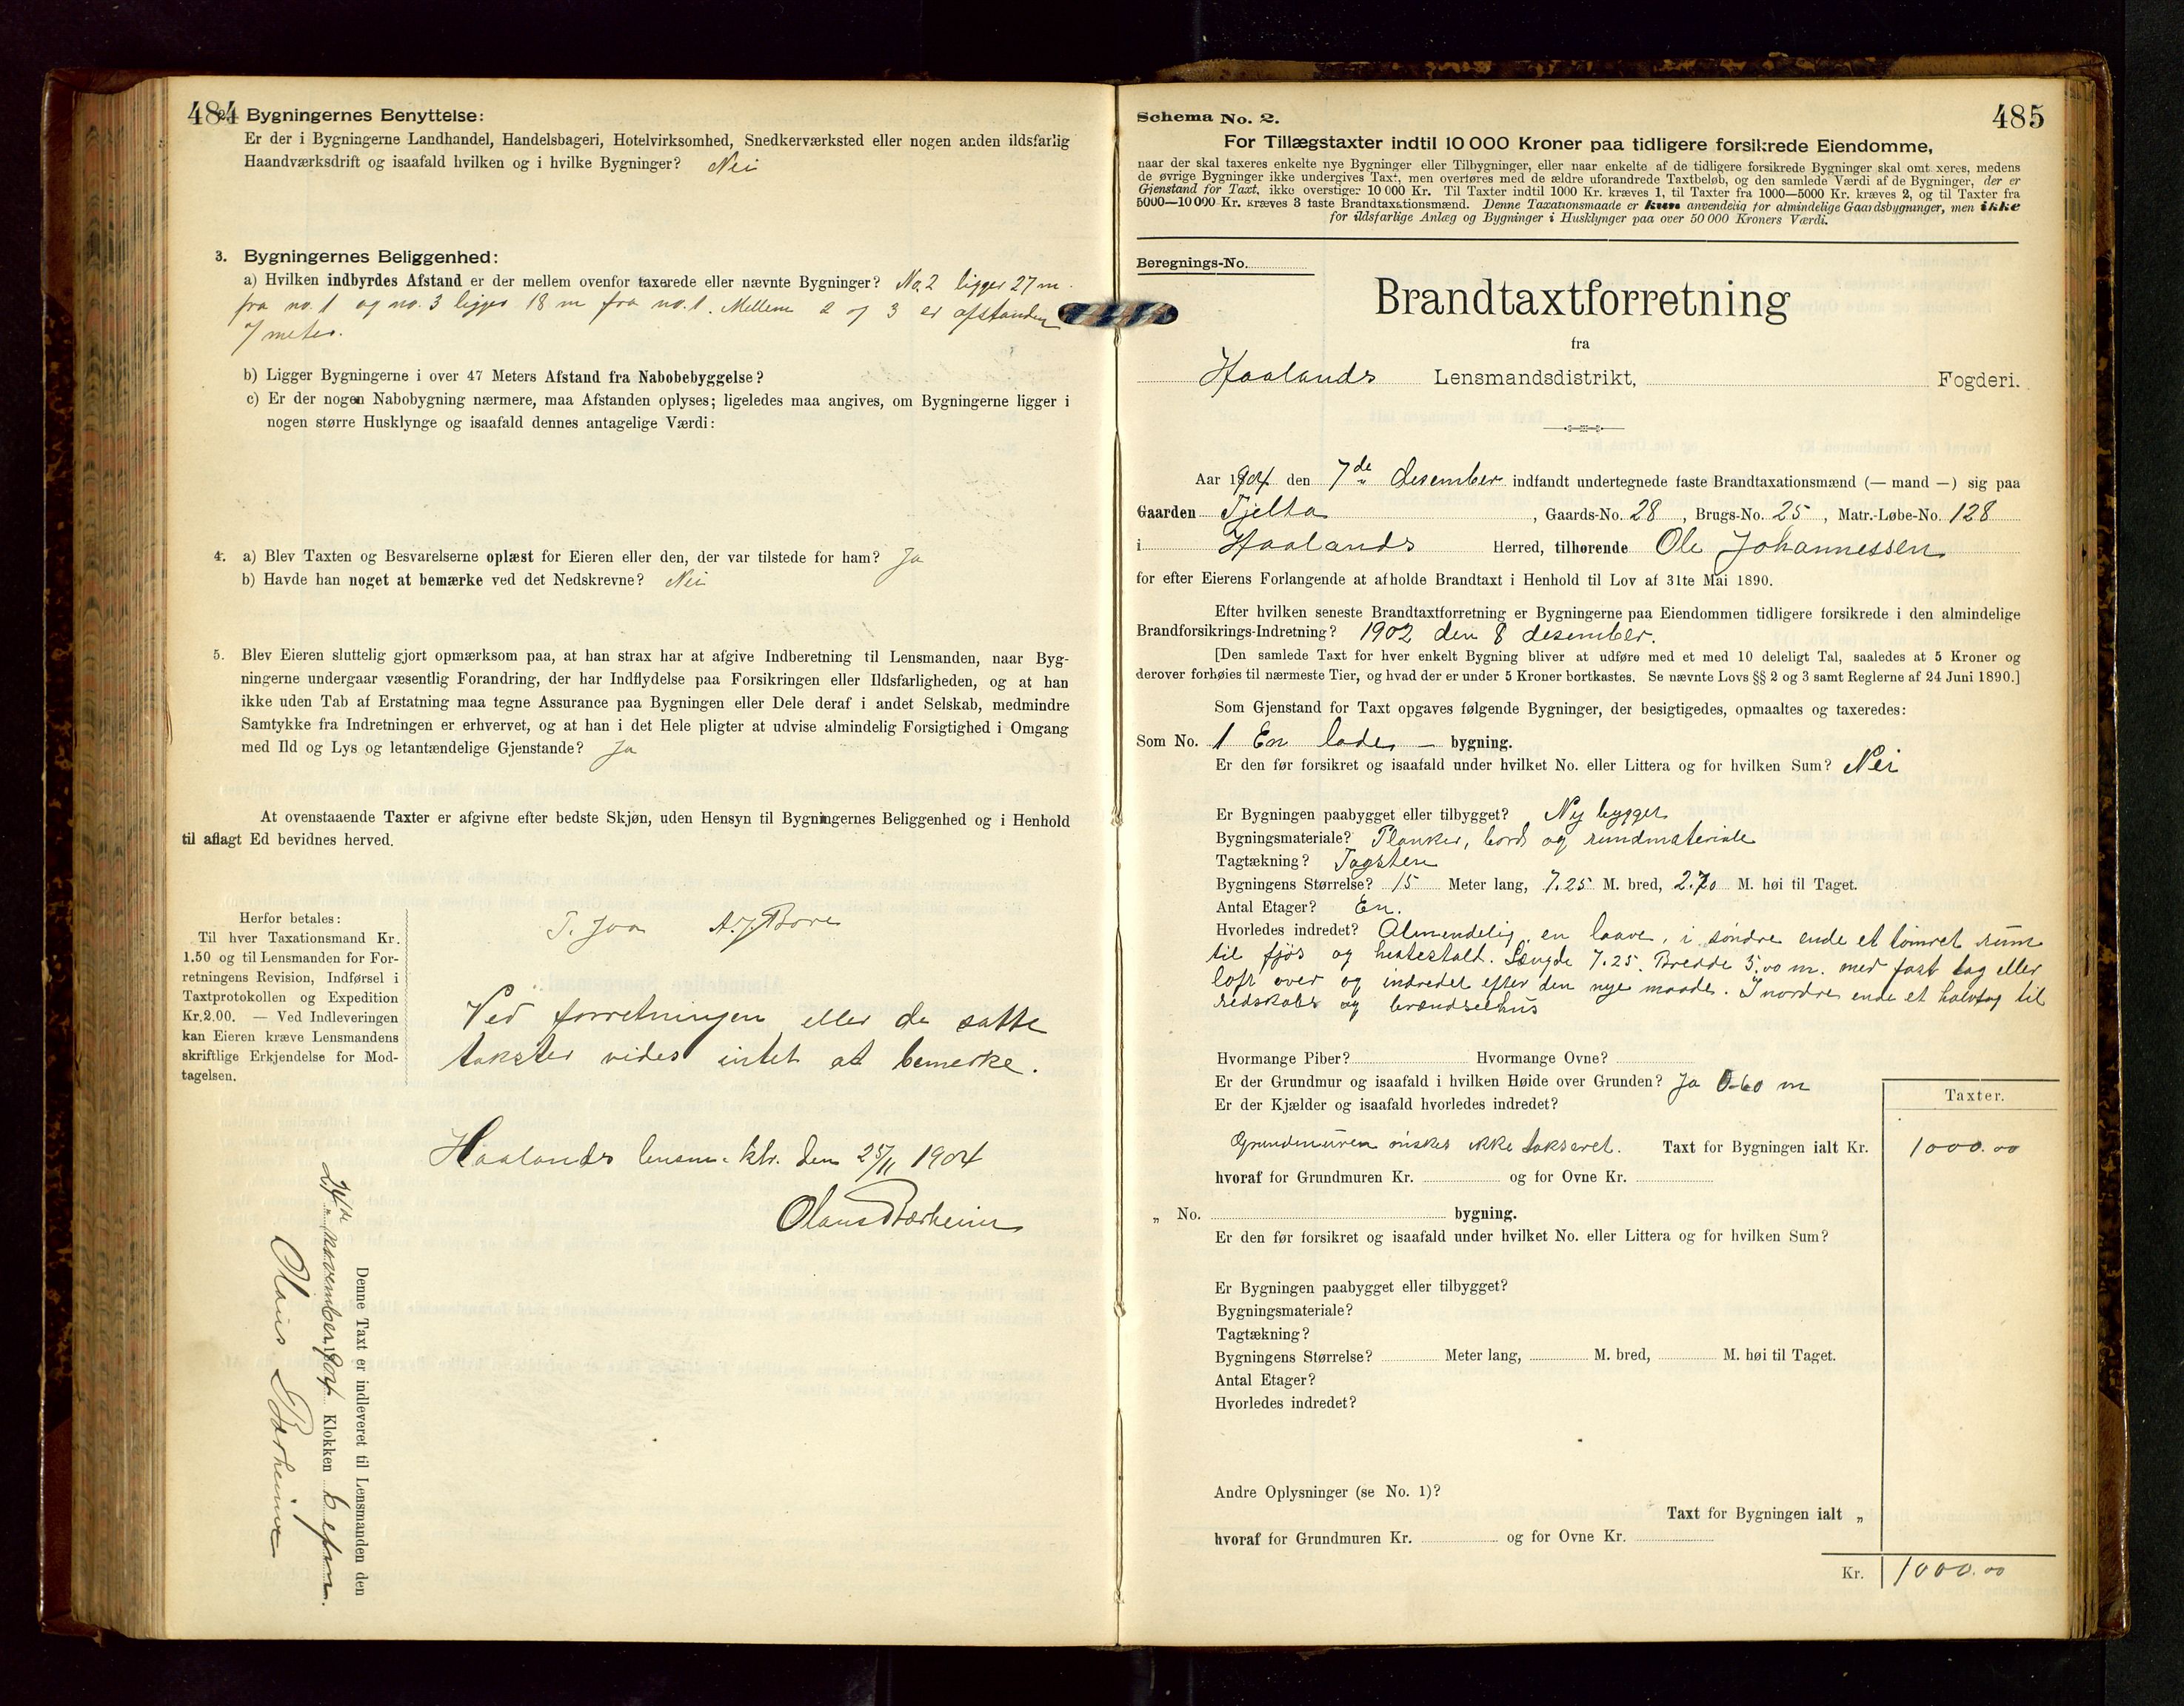 484
2. Bygningernes Benyttelse:
Er der i Bygningerne Landhandel, Handelsbageri, Hotelvirksomhed, Snedkerværksted eller nogen anden ildsfarlig
Haandværksdrift og isaafald hvilken og i hvilke Bygninger? Nei
3. Bygningernes Beliggenhed:
a) Hvilken indbyrdes Afstand er der mellem ovenfor taxerede eller nævnte Bygninger? No. 2 ligger 27 m.
fra no. 1 og no. 3 ligger 18 m fra no. 1. Mellem 2 og 3 er afstanden
7 meter.
b) Ligger Bygningerne i over 47 Meters Afstand fra Nabobebyggelse?
c) Er der nogen Nabobygning nærmere, maa Afstanden oplyses; ligeledes maa angives, om Bygningerne ligger i
nogen større Husklynge og isaafald dennes antagelige Værdi:
4. a) Blev Taxten og Besvarelserne oplæst for Eieren eller den, der var tilstede for ham? Ja
b) Havde han noget at bemærke ved det Nedskrevne? Nei
5. Blev Eieren sluttelig gjort opmærksom paa, at han strax har at afgive Indberetning til Lensmanden, naar Byg-
ningerne undergaar væsentlig Forandring, der har Indflydelse paa Forsikringen eller Ildsfarligheden, og at han
ikke uden Tab af Erstatning maa tegne Assurance paa Bygningen eller Dele deraf i andet Selskab, medmindre
Samtykke fra Indretningen er erhvervet, og at han i det Hele pligter at udvise almindelig Forsigtighed i Omgang
med Ild og Lys og letantændelige Gjenstande? Ja
At ovenstaaende Taxter er afgivne efter bedste Skjøn, uden Hensyn til Bygningernes Beliggenhed og i Henhold
til aflagt Ed bevidnes herved.
Herfor betales:
Til hver Taxationsmand Kr.
1.50 og til Lensmanden for For-
retningens Revision, Indførsel i
Taxtprotokollen og Expedition
Kr.2.00. — Ved Indleveringen
kan Eieren kræve Lensmandens
skriftlige Erkjendelse for Mod-
tagelsen.
T. Joa A. J. Bore
Ved forretningen eller de satte
takster vides intet at bemerke.
Haalands lensm. ktr. den 25/11 1904
Olaus Bærheim
Denne Taxt er indleveret til Lensmanden den
24de november 1904 Klokken 6 efm.
Olaus Bærheim
Schema No. 2.
485
For Tillægstaxter indtil 10 000 Kroner paa tidligere forsikrede Eiendomme,
naar der skal taxeres enkelte nye Bygninger eller Tilbygninger, eller naar enkelte af de tidligere forsikrede Bygninger skal omt xeres, medens
de øvrige Bygninger ikke undergives Taxt, men overføres med de ældre uforandrede Taxtbeløb, og den samlede Værdi af de Bygninger, der er
Gjenstand for Taxt, ikke overstiger 10 000 Kr. Til Taxter indtil 1000 Kr. kræves 1, til Taxter fra 1000—5000 Kr. kræves 2, og til Taxter fra
5000—10 000 Kr. kræves 3 faste Brandtaxationsmænd. Denne Taxationsmaade er kun anvendelig for almindelige Gaardsbygninger, men ikke
for ildsfarlige Anlæg og Bygninger i Husklynger paa over 50 000 Kroners Værdi.
Beregnings-No.
Brandtaxtforretning
fra
Haalands Lensmandsdistrikt, Fogderi.
Aar 1904 den 7de desember indfandt undertegnede faste Brandtaxationsmænd (— mand —) sig paa
Gaarden Tjelta, Gaards-No. 28, Brugs-No. 25, Matr.-Løbe-No. 128
i Haalands Herred, tilhørende Ole Johannessen
for efter Eierens Forlangende at afholde Brandtaxt i Henhold til Lov af 31te Mai 1890.
Efter hvilken seneste Brandtaxtforretning er Bygningerne paa Eiendommen tidligere forsikrede i den almindelige
Brandforsikrings-Indretning? 1902 den 8 desember.
[Den samlede Taxt for hver enkelt Bygning bliver at udføre med et med 10 deleligt Tal, saaledes at 5 Kroner og
derover forhøies til nærmeste Tier, og hvad der er under 5 Kroner bortkastes. Se nævnte Lovs §§ 2 og 3 samt Reglerne af 24 Juni 1890.]
Som Gjenstand for Taxt opgaves følgende Bygninger, der besigtigedes, opmaaltes og taxeredes:
Som No. 1 En lade — bygning.
Er den før forsikret og isaafald under hvilket No. eller Littera og for hvilken Sum? Nei
Er Bygningen paabygget eller tilbygget? Ny bygget
Bygningsmateriale? Planker, bord og rundmateriale
Tagtækning? Tagsten
Bygningens Størrelse? 15 Meter lang, 7.25 M. bred, 2.70 M. høi til Taget.
Antal Etager? En.
Hvorledes indredet? Almendelig, en laave, i søndre ende et tømret rum
til fjøs og hestestald. Længde 7.25. Bredde 5.00 m. med fast tag eller
loft over og indredet efter den nye maade. I nordre ende et halvtag til
redskabs og brændselhus
Hvormange Piber? Hvormange Ovne?
Er der Grundmur og isaafald i hvilken Høide over Grunden? Ja 0.60 m
Er der Kjælder og isaafald hvorledes indredet?
Taxter.
Grundmuren ønskes ikke takseret. Taxt for Bygningen ialt Kr. 1000.00
hvoraf for Grundmuren Kr. og for Ovne Kr.
„ No. bygning.
Er den før forsikret og isaafald under hvilket No. eller Littera og for hvilken Sum?
Er Bygningen paabygget eller tilbygget?
Bygningsmateriale?
Tagtækning?
Bygningens Størrelse? Meter lang, M. bred, M. høi til Taget.
Antal Etager?
Hvorledes indredet?
Andre Oplysninger (se No. 1)?
Taxt for Bygningen ialt „
hvoraf for Grundmuren Kr. og for Ovne Kr.
Kr. 1000.00